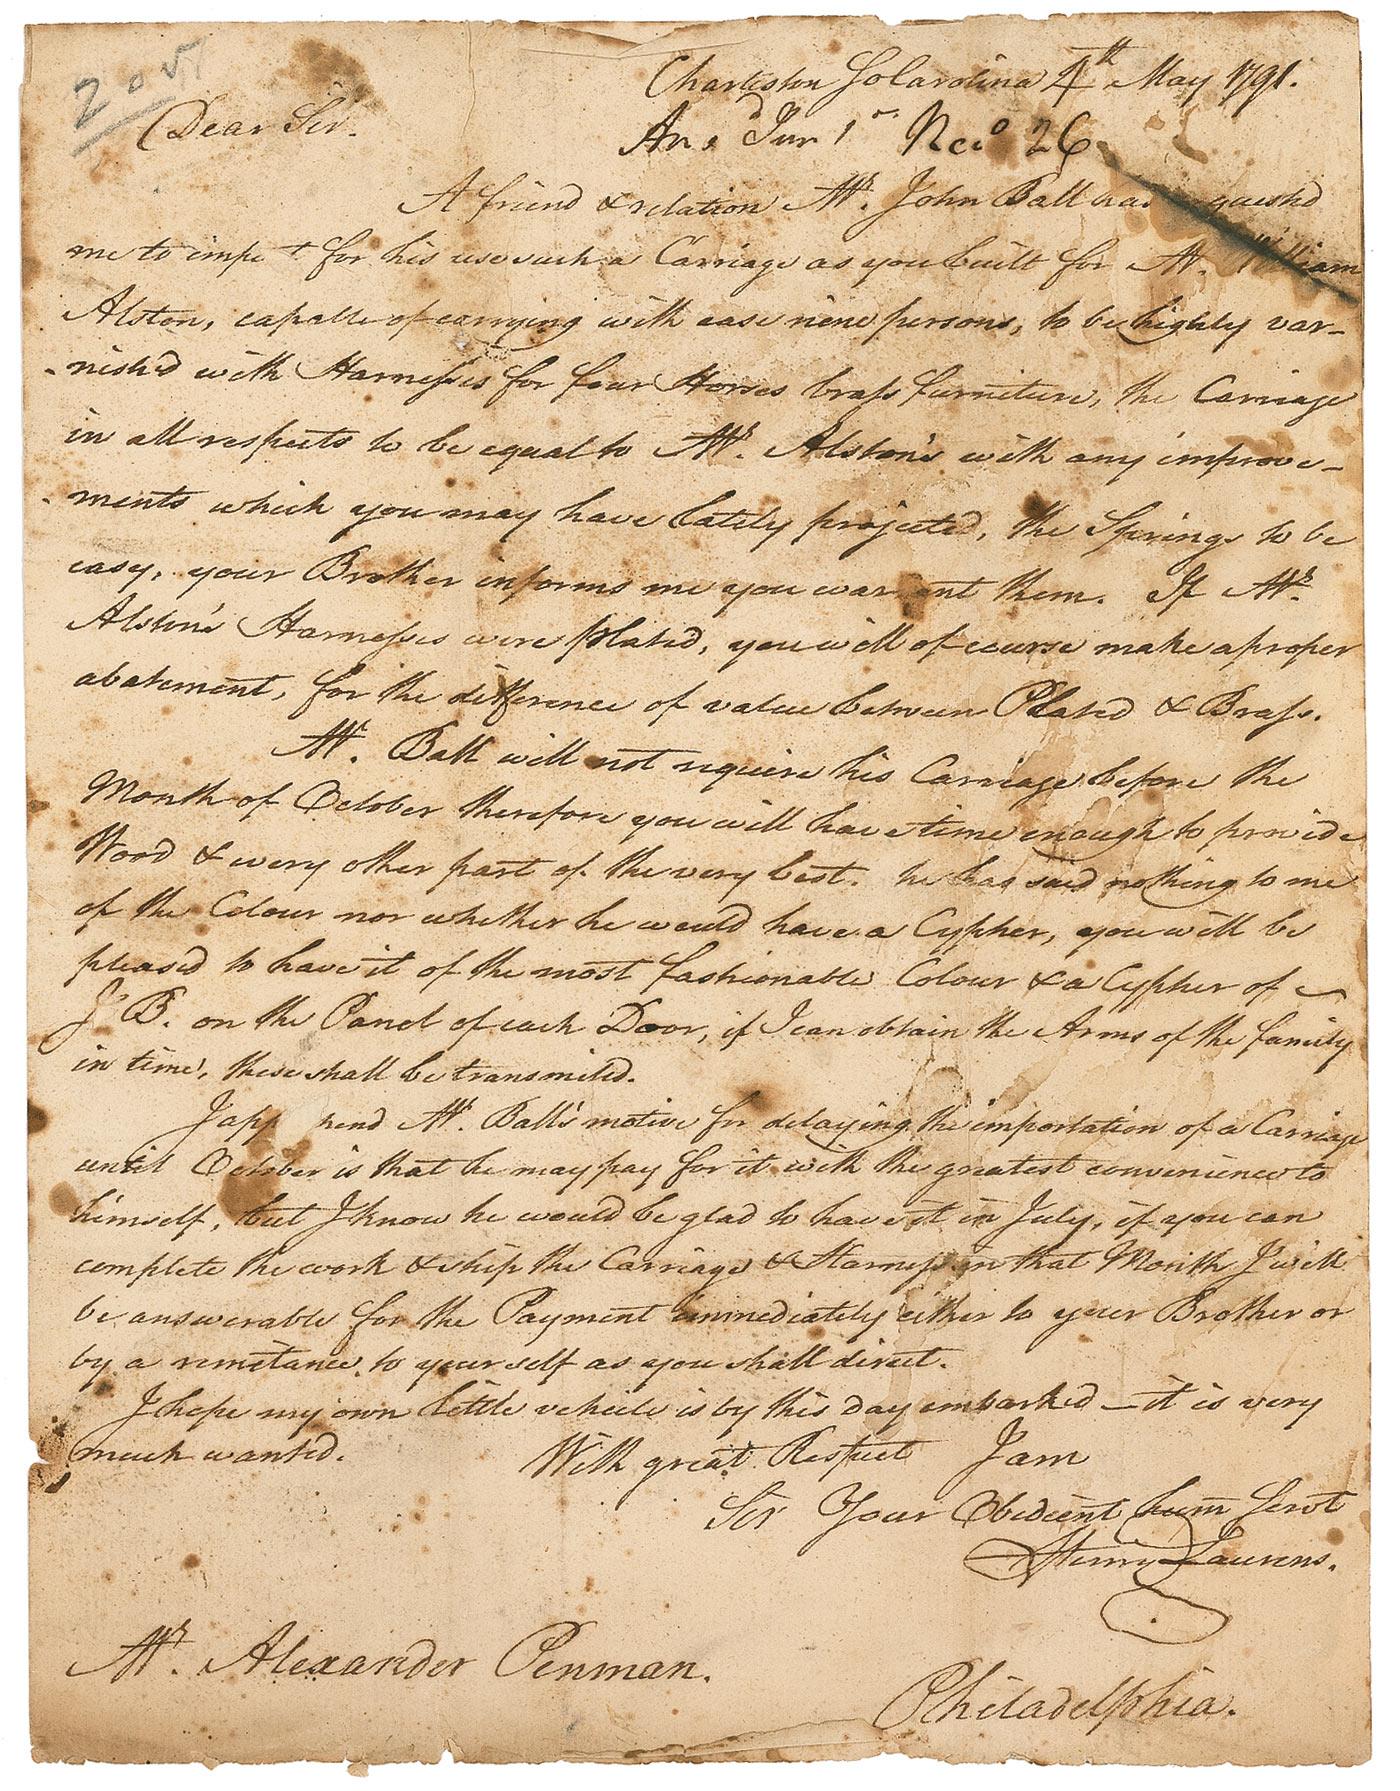 20
Charleston So Carolina 4th May 1791.
Dear Sir.
An.d Jun 1 Rec.o 26
A friend & relation Mr. John Ball has quested
me to impo t for his use such a Carriage as you built for Mr. William
Alston, capable of carrying with ease nine persons, to be highly var-
nish'd with Harnesses for four Horses brass furniture, the Carriage
in all respects to be equal to Mr. Alston's with any improve-
ments which you may have lately projected, the Springs to be
easy, your Brother informs me you war ant them. If Mr.
Alston's Harnesses were plated, you will of course make a proper
abatement, for the difference of value between Plated & Brass.
Mr. Ball will not require his Carriage before the
Month of October therefore you will have time enough to provide
Wood & every other part of the very best. he has said nothing to me
of the Colour nor whether he would have a Cypher, you will be
pleased to have it of the most fashionable Colour & a Cypher of
J B. on the Panel of each Door, if I can obtain the Arms of the family
in time, these shall be transmited.
I app hend Mr. Ball's motive for delaying the importation of a Carriage
until October is that he may pay for it with the greatest convenience to
himself, but I know he would be glad to have it in July, if you can
complete the work & ship the Carriage & Harness in that Month I will
be answerable for the Payment immediately either to your Brother or
by a remitance to yourself as you shall direct.
I hope my own little vehicle is by this day embarked – it is very
much wanted.
With great Respect I am
Sir Your Obedient hum Servt
Henry Laurens.
Mr. Alexander Penman.
Philadelphia.